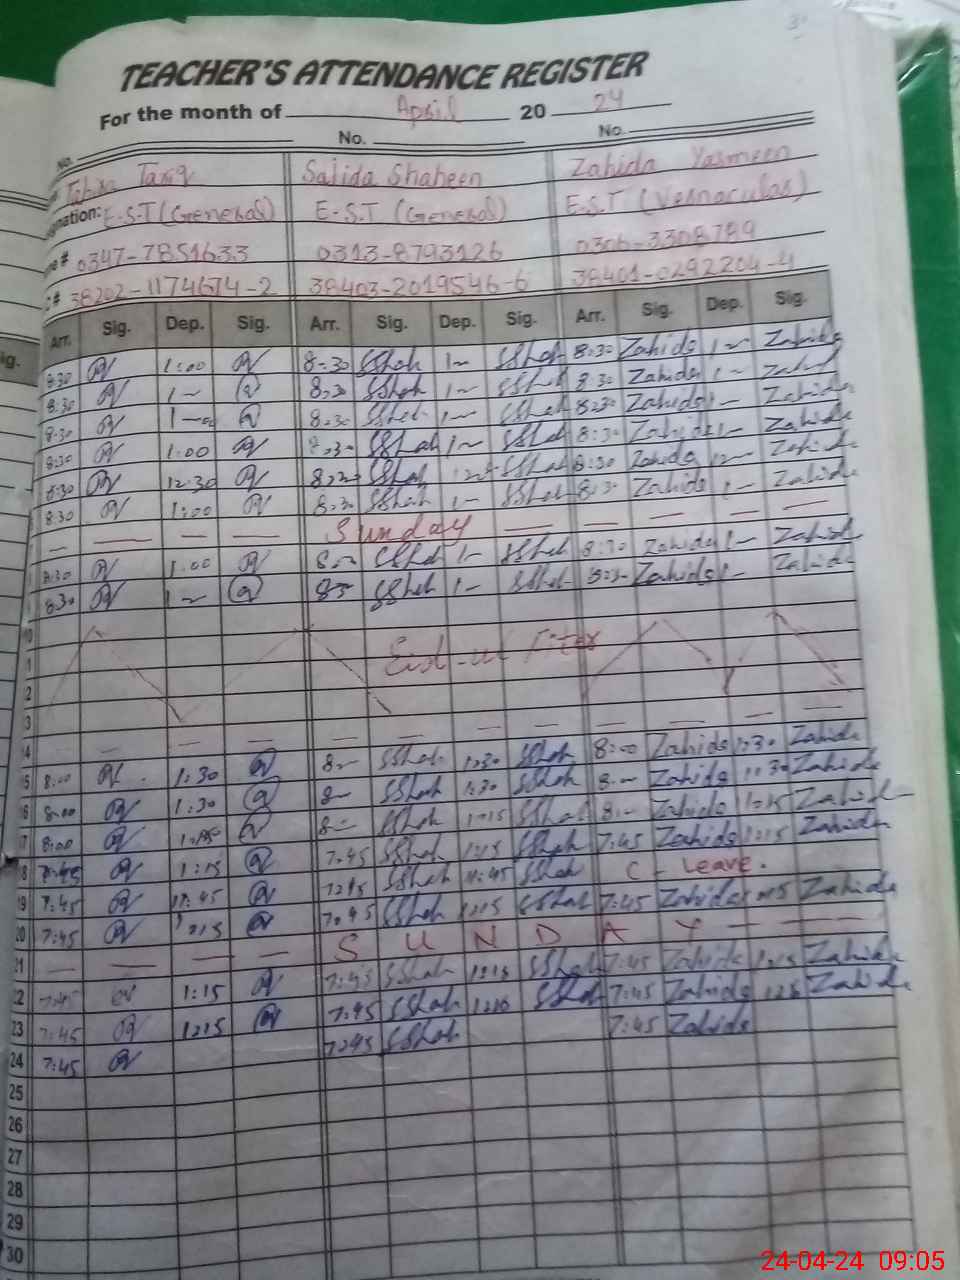 TEACHER'S ATTENDANCE REGISTER
For the month of April 20 24
No. No. No.
Tahira Tariq Sajida Shaheen Zahida Yasmeen
E.S.T (General) E.S.T (General) E.S.T (Vernacular)
0347-7851633 0313-8793126 0306-3308789
38202-1174674-2 38403-2019546-6 38401-0292204-4
Arr. Sig. Dep. Sig. Arr. Sig. Dep. Sig. Arr. Sig. Dep. Sig.
8:30 1:00 8:30 SShah 1 SShah 8:30 Zahida 1 Zahida
8:30 1 8:30 SShah 1 SShah 8:30 Zahida 1 Zahida
8:30 8:30 SShah 1 SShah 8:30 Zahida 1 Zahida
8:30 1:00 8:30 SShah 1 SShah 8:30 Zahida 1 Zahida
8:30 12:30 SShah SShah 8:30 Zahida Zahida
8:30 1:00 8:30 SShah 1 SShah 8:30 Zahida 1 Zahida
— — — — Sunday — — — — —
8:30 1:00 SShah 1 SShah 8:30 Zahida 1 Zahida
8:30 1 SShah 1 SShah Zahida 1 Zahida
10
Eid-ul-Fiter
— — — — — — — — — — — —
8:00 1:30 SShah 1:30 SShah 8:00 Zahida 1:30 Zahida
8:00 1:30 SShah 1:30 SShah Zahida 1:30 Zahida
8:00 SShah 1:15 SShah Zahida 1:15 Zahida
7:45 1:15 7:45 SShah 1:15 SShah 7:45 Zahida 1:15 Zahida
19 7:45 11:45 SShah 11:45 SShah C-Leave.
20 7:45 1:15 7:45 SShah 1:15 SShah 7:45 Zahida Zahida
21 — — — — SUNDAY — — —
22 7:45 1:15 7:45 SShah 1:15 SShah 7:45 Zahida 1:15 Zahida
23 7:45 1:15 7:45 SShah SShah 7:45 Zahida Zahida
24 7:45 7:45 SShah 7:45 Zahida
25
26
27
28
29
30
24-04-24 09:05